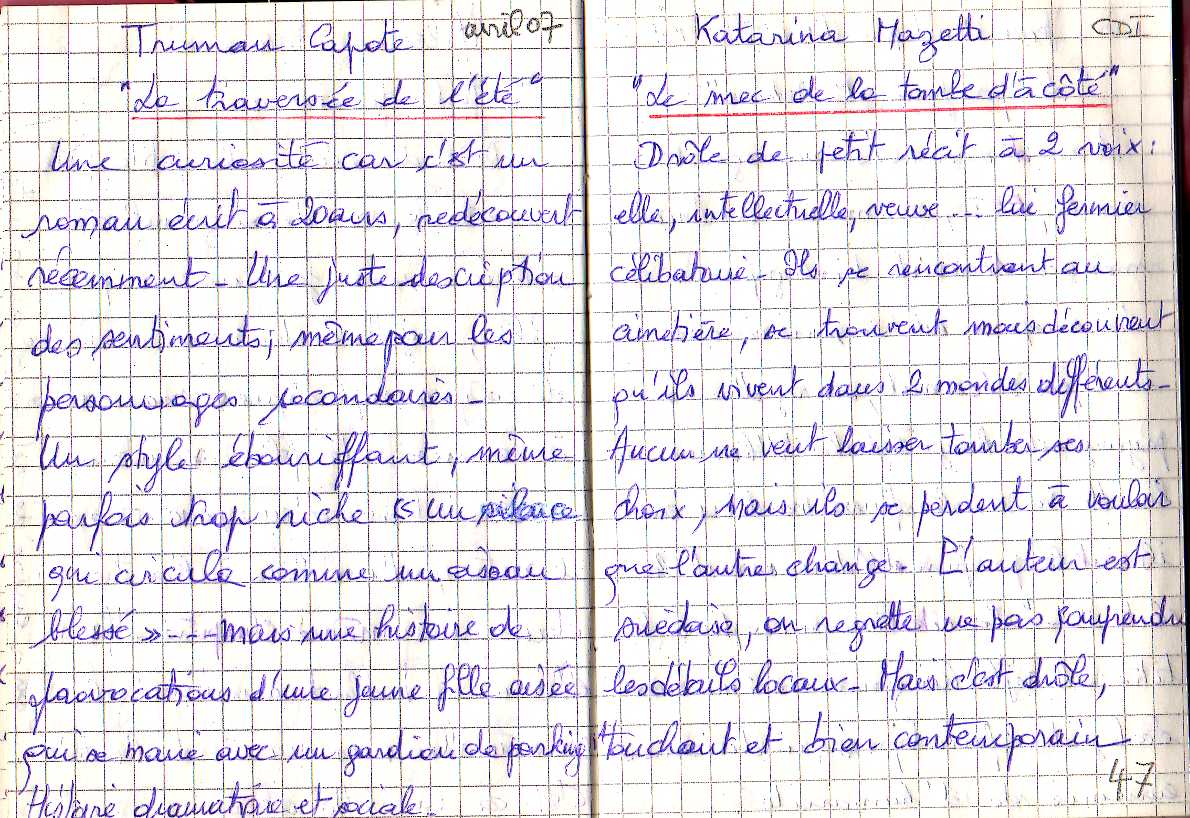 Truman Capote avril 07
"La traversée de l'été"
Une curiosité car c'est un
roman écrit à 20 ans, redécouvert
récemment - Une juste description
des sentiments, même pour les
personnages secondaires -
Un style ébouriffant, même
parfois trop riche « un silence
qui circula comme un oiseau
blessé » --- mais une histoire de
provocations d'une jeune fille aisée
qui se marie avec un gardien de parking
Histoire dramatique et sociale.
Katarina Mazetti CDI
"Le mec de la tombe d'à côté"
Drôle de petit récit à 2 voix :
elle, intellectuelle, veuve ... lui fermier
célibataire - Ils se rencontrent au
cimetière, se trouvent mais découvrent
qu'ils vivent dans 2 mondes différents -
Aucun ne veut laisser tomber ses
choix, mais ils se perdent à vouloir
que l'autre change - L'auteur est
suédoise, on regrette ne pas comprendre
les détails locaux - Mais c'est drôle,
touchant et bien contemporain
47